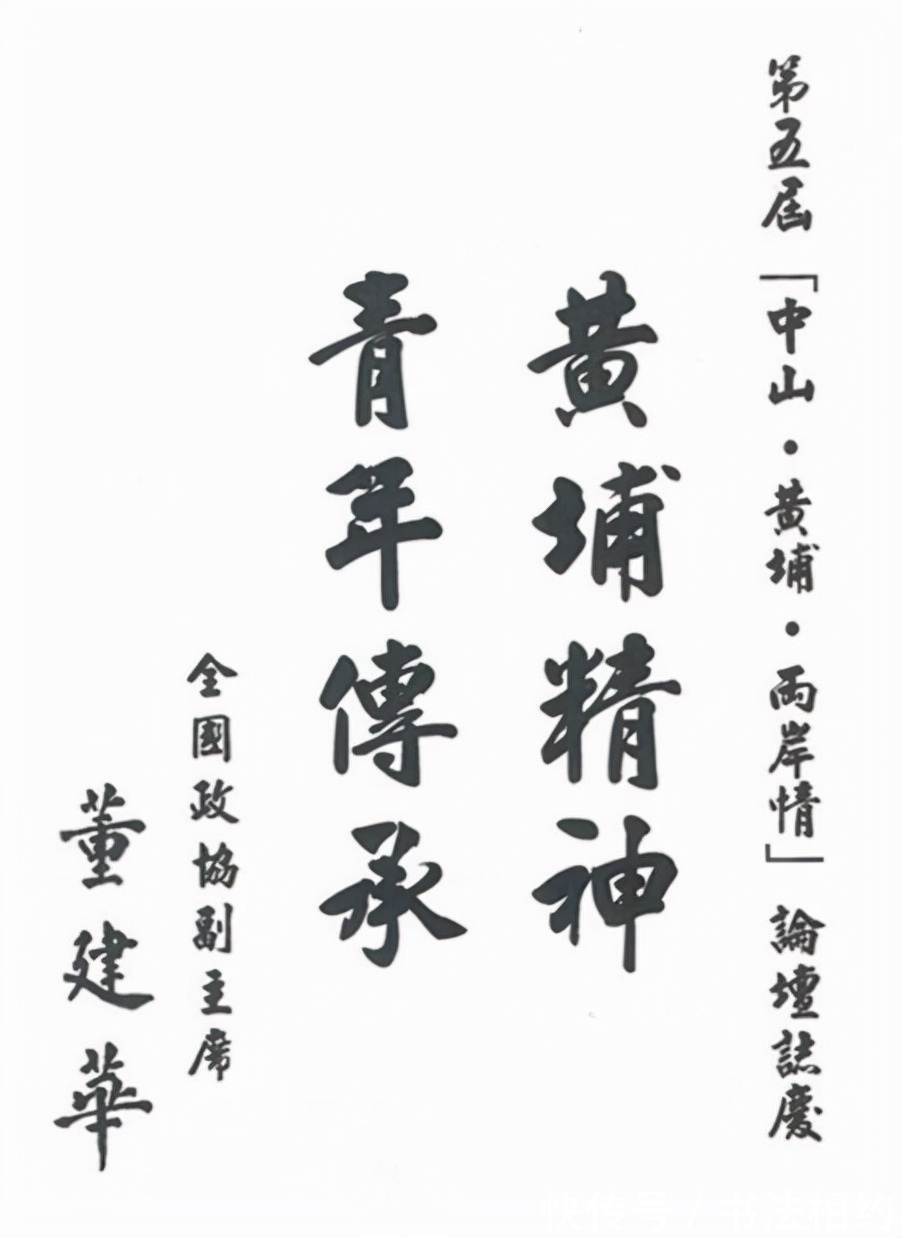 第五屆「中山·黃埔·兩岸情」論壇誌慶
黃埔精神
青年傳承
全國政協副主席
董建華
快传号/书法相约